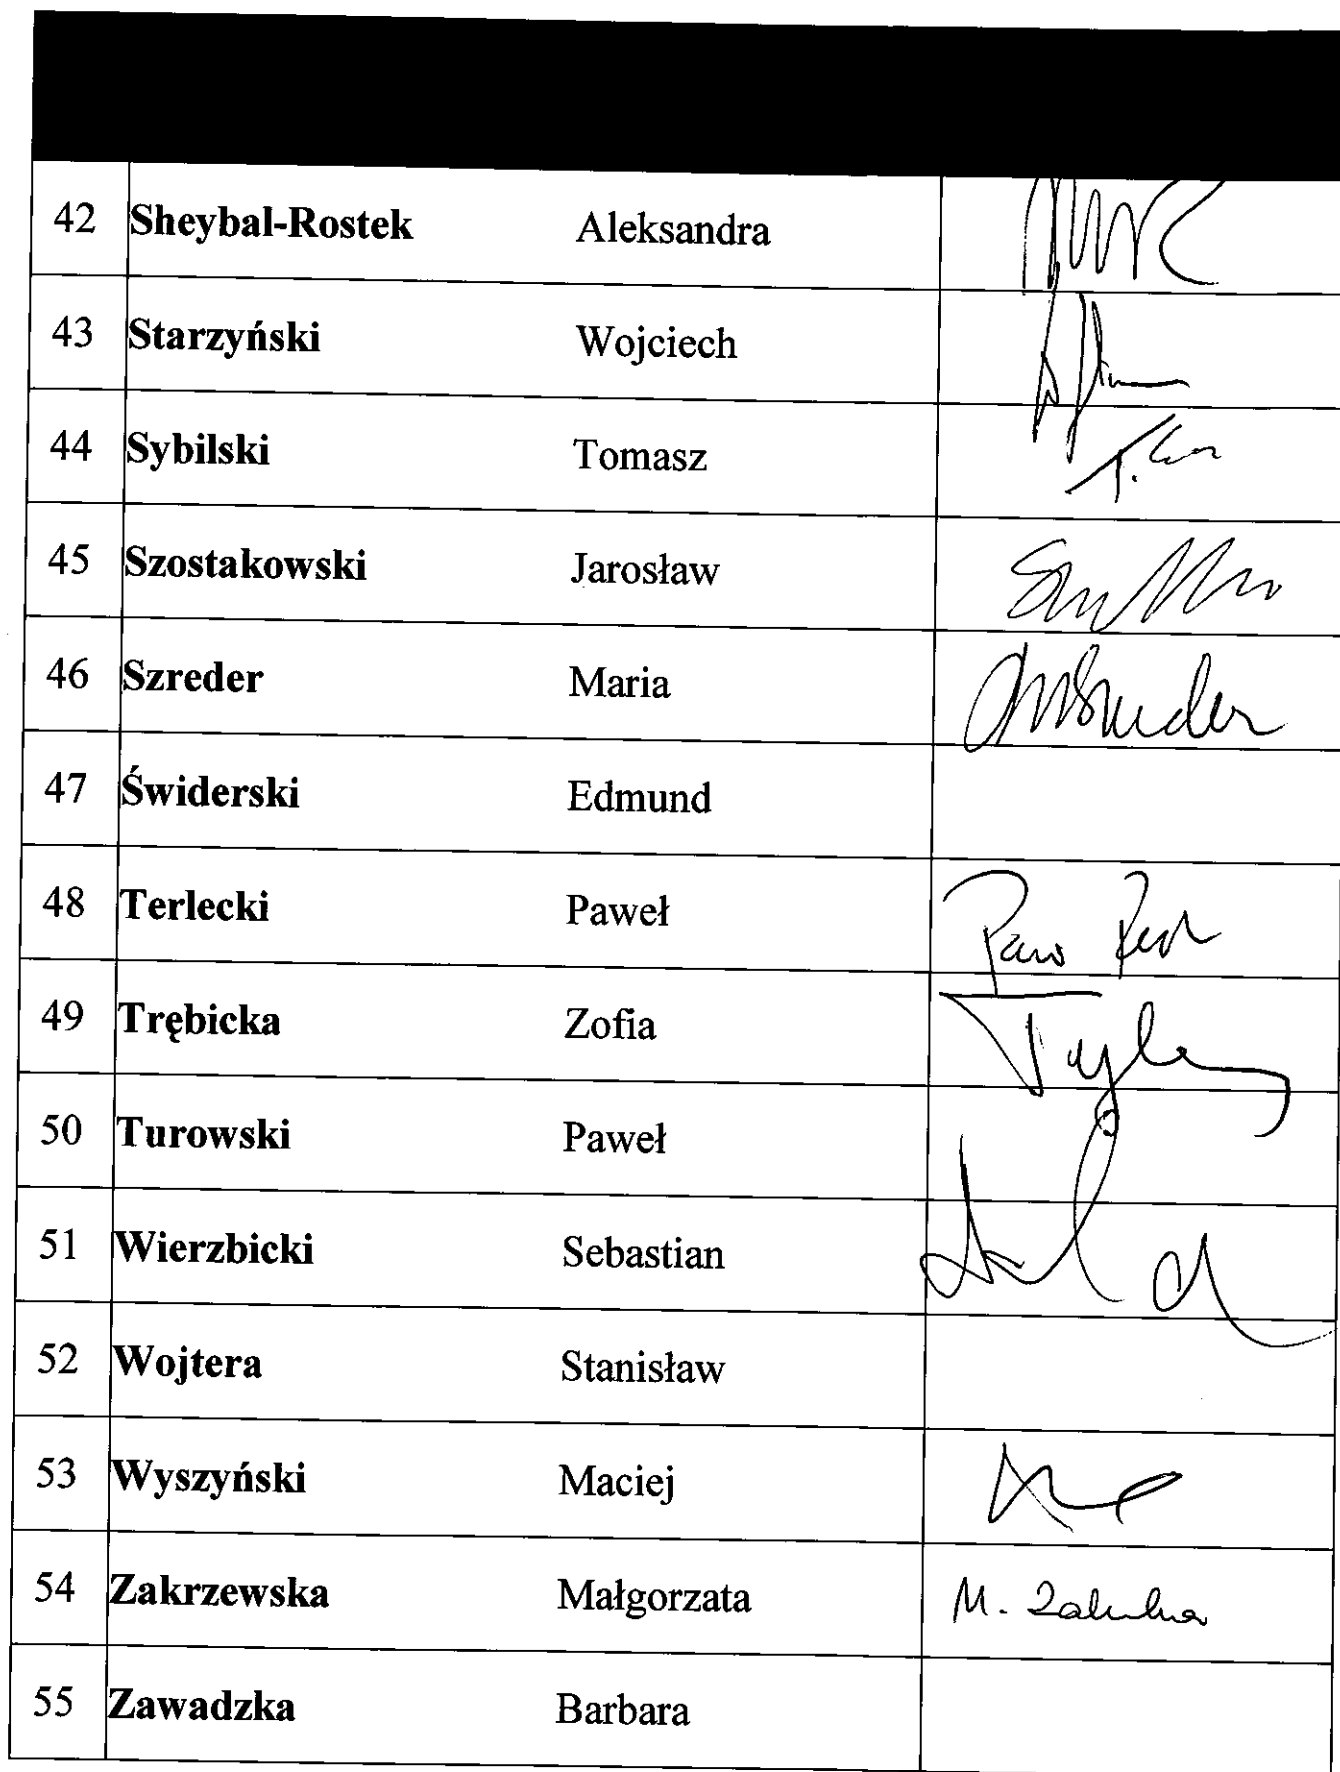 42 Sheybal-Rostek Aleksandra
43 Starzyński Wojciech
44 Sybilski Tomasz
45 Szostakowski Jarosław
46 Szreder Maria
47 Świderski Edmund
48 Terlecki Paweł
49 Trębicka Zofia
50 Turowski Paweł
51 Wierzbicki Sebastian
52 Wojtera Stanisław
53 Wyszyński Maciej
54 Zakrzewska Małgorzata M.
55 Zawadzka Barbara